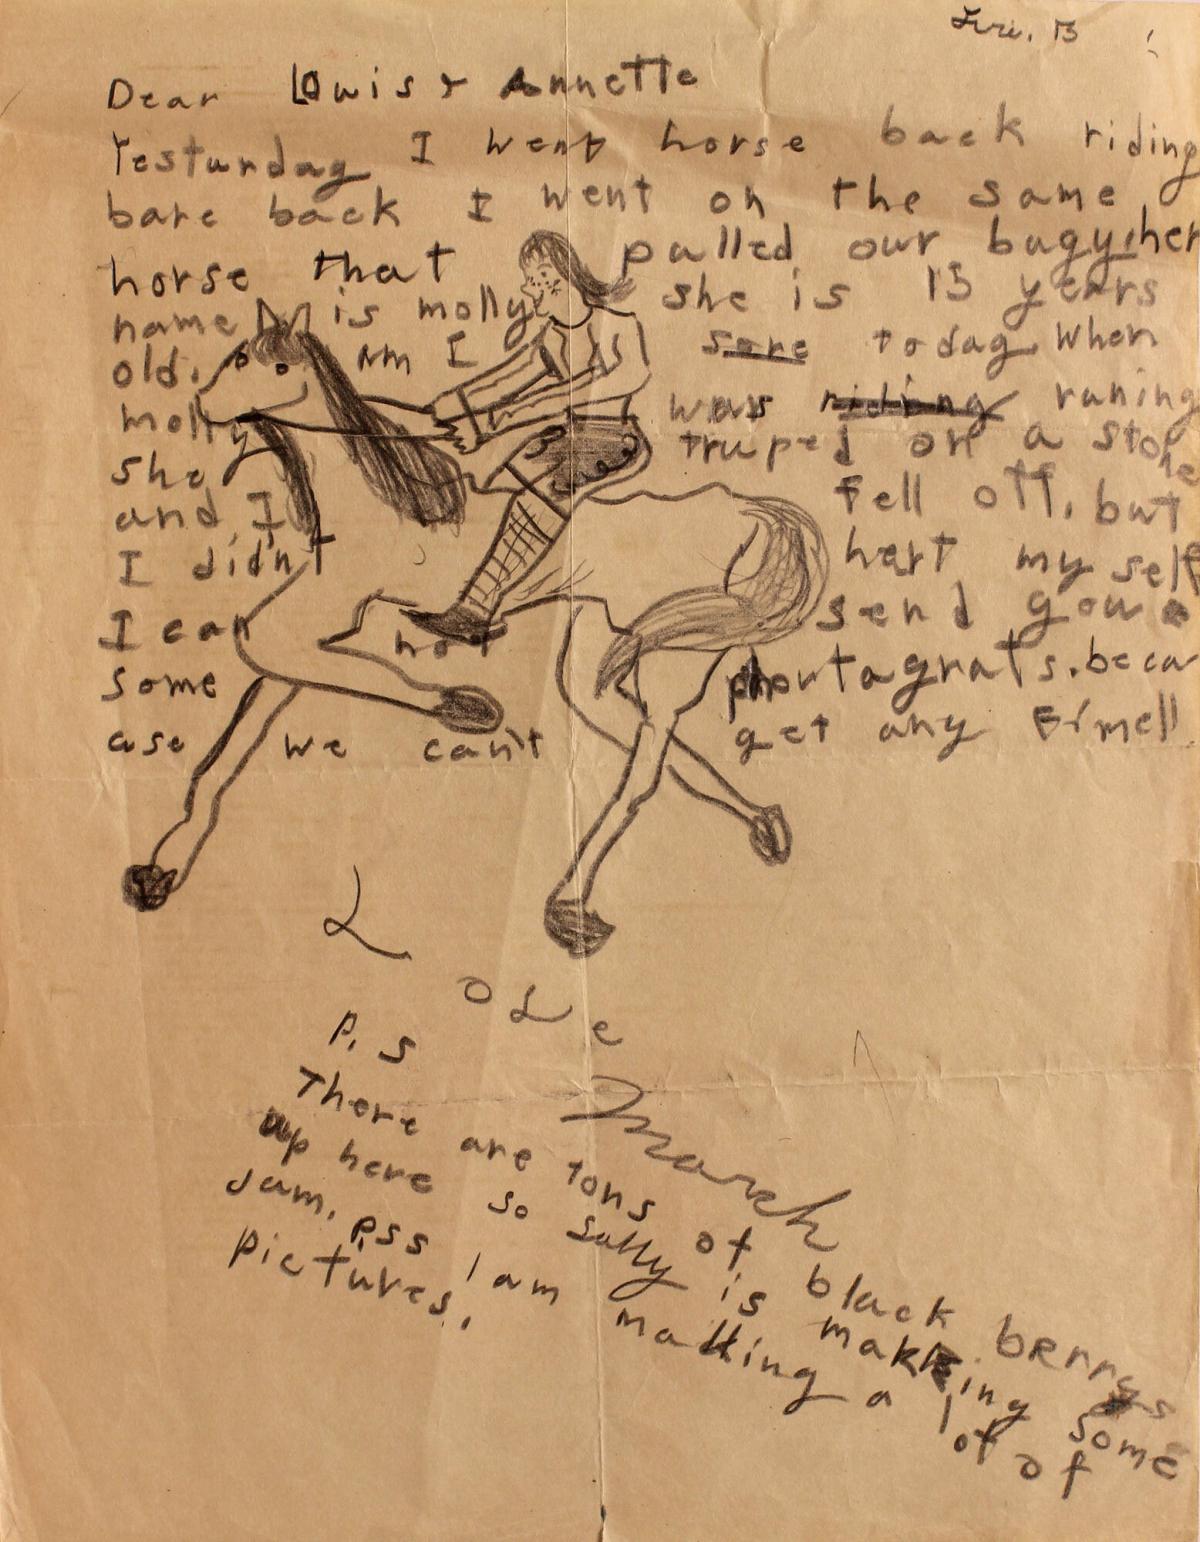 Dear Lowis & Annette
Yesturday I went horse back riding
bare back I went on the same
horse that pulled our bugy, her
name is molly she is 13 years
old. am I sore today. When
molly was riding runing
she truped on a stone
and I fell off. but
I didn't hert my self
I can not send you a
some photagrafs. beca
use we can't get any Fimell
Love
March
P. S
There are tons of black berrys
up here so Sally is making some
Jam. PSS I am making a lot of
pictures.